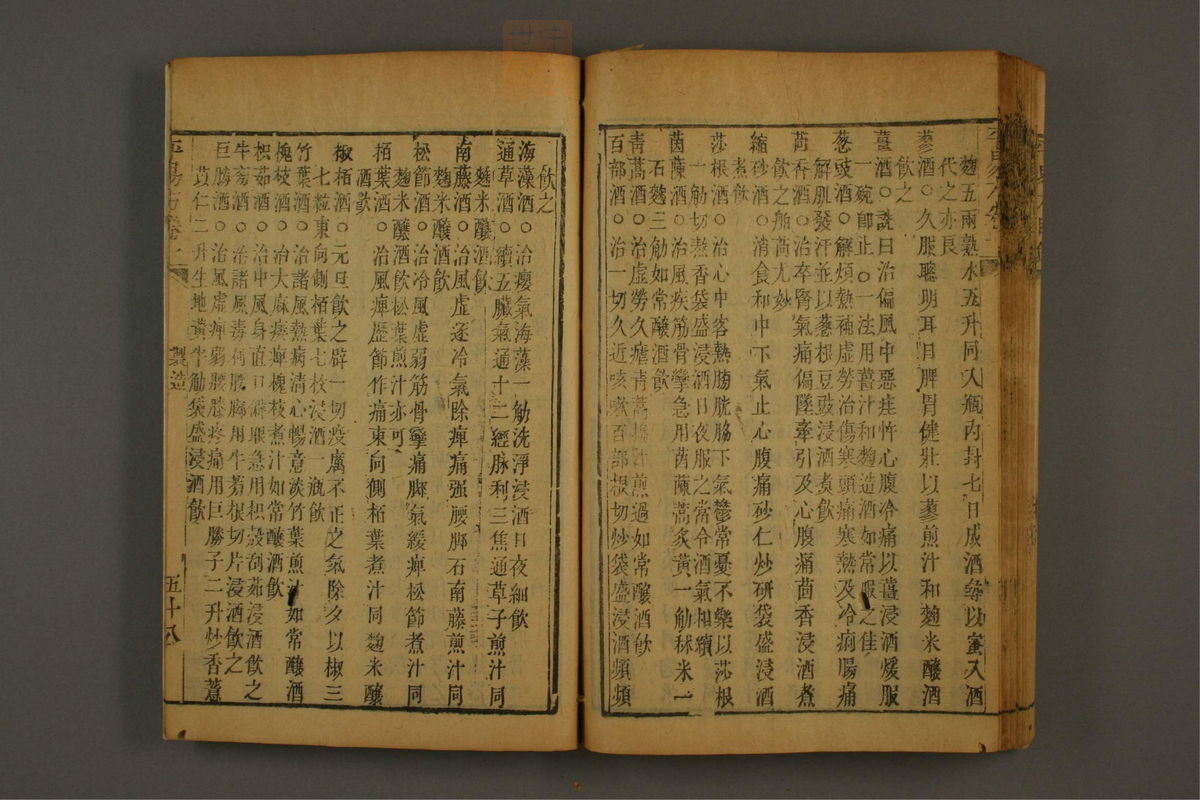 麴五兩熟水五升同入瓶內封七日成酒以蜜入酒
代之亦良
蓼酒○久服聰明耳目脾胃健壯以蓼煎汁和麴米釀酒
飲之
薑酒○詵曰治偏風中惡疰忤心腹冷痛以薑浸酒煖服
一碗即止○一法用薑汁和麴造酒如常服之佳
葱豉酒○解煩熱補虛勞治傷寒頭痛寒熱及冷痢腸痛
解肌發汗並以葱根豆豉浸酒煮飲
茴香酒○治卒腎氣痛偏墜牽引及心腹痛茴香浸酒煮
飲之舶茴尤妙
縮砂酒○消食和中下氣止心腹痛砂仁炒研袋盛浸酒
煮飲
莎根酒○治心中客熱膀胱脇下氣鬱常憂不樂以莎根
一觔切熬香袋盛浸酒日夜服之常令酒氣相續
茵蔯酒○治風疾筋骨攣急用茵蔯蒿炙黃一觔秫米一
石麴三觔如常釀酒飲
青蒿酒○治虛勞久瘧青蒿搗汁煎過如常釀酒飲
百部酒○治一切久近咳嗽百部根切炒袋盛浸酒頻頻
飲之
海藻酒○治癭氣海藻一觔洗淨浸酒日夜細飲
通草酒○續五臟氣通十二經脉利三焦通草子煎汁同
麴米釀酒飲
南藤酒○治風虛逐冷氣除痺痛强腰脚石南藤煎汁同
麴米釀酒飲
松節酒○治冷風虛弱筋骨攣痛脚氣緩痺松節煮汁同
麴米釀酒飲松葉煎汁亦可
栢葉酒○治風痺歷節作痛東向側栢葉煮汁同麴米釀
酒飲
椒栢酒○元旦飲之辟一切疫癘不正之氣除夕以椒三
七粒東向側栢葉七枝浸酒一瓶飲
竹葉酒○治諸風熱病清心暢意淡竹葉煎汁如常釀酒
飲
槐枝酒○治大麻痿痺槐枝煮汁如常釀酒飲
枳茹酒○治中風身直口僻眼急用枳殼刮茹浸酒飲之
牛蒡酒○治諸風毒利腰脚用牛蒡根切片浸酒飲之
巨勝酒○治風虛痺弱腰膝疼痛用巨勝子二升炒香薏
苡仁二升生地黃半觔袋盛浸酒飲
製造
五十八